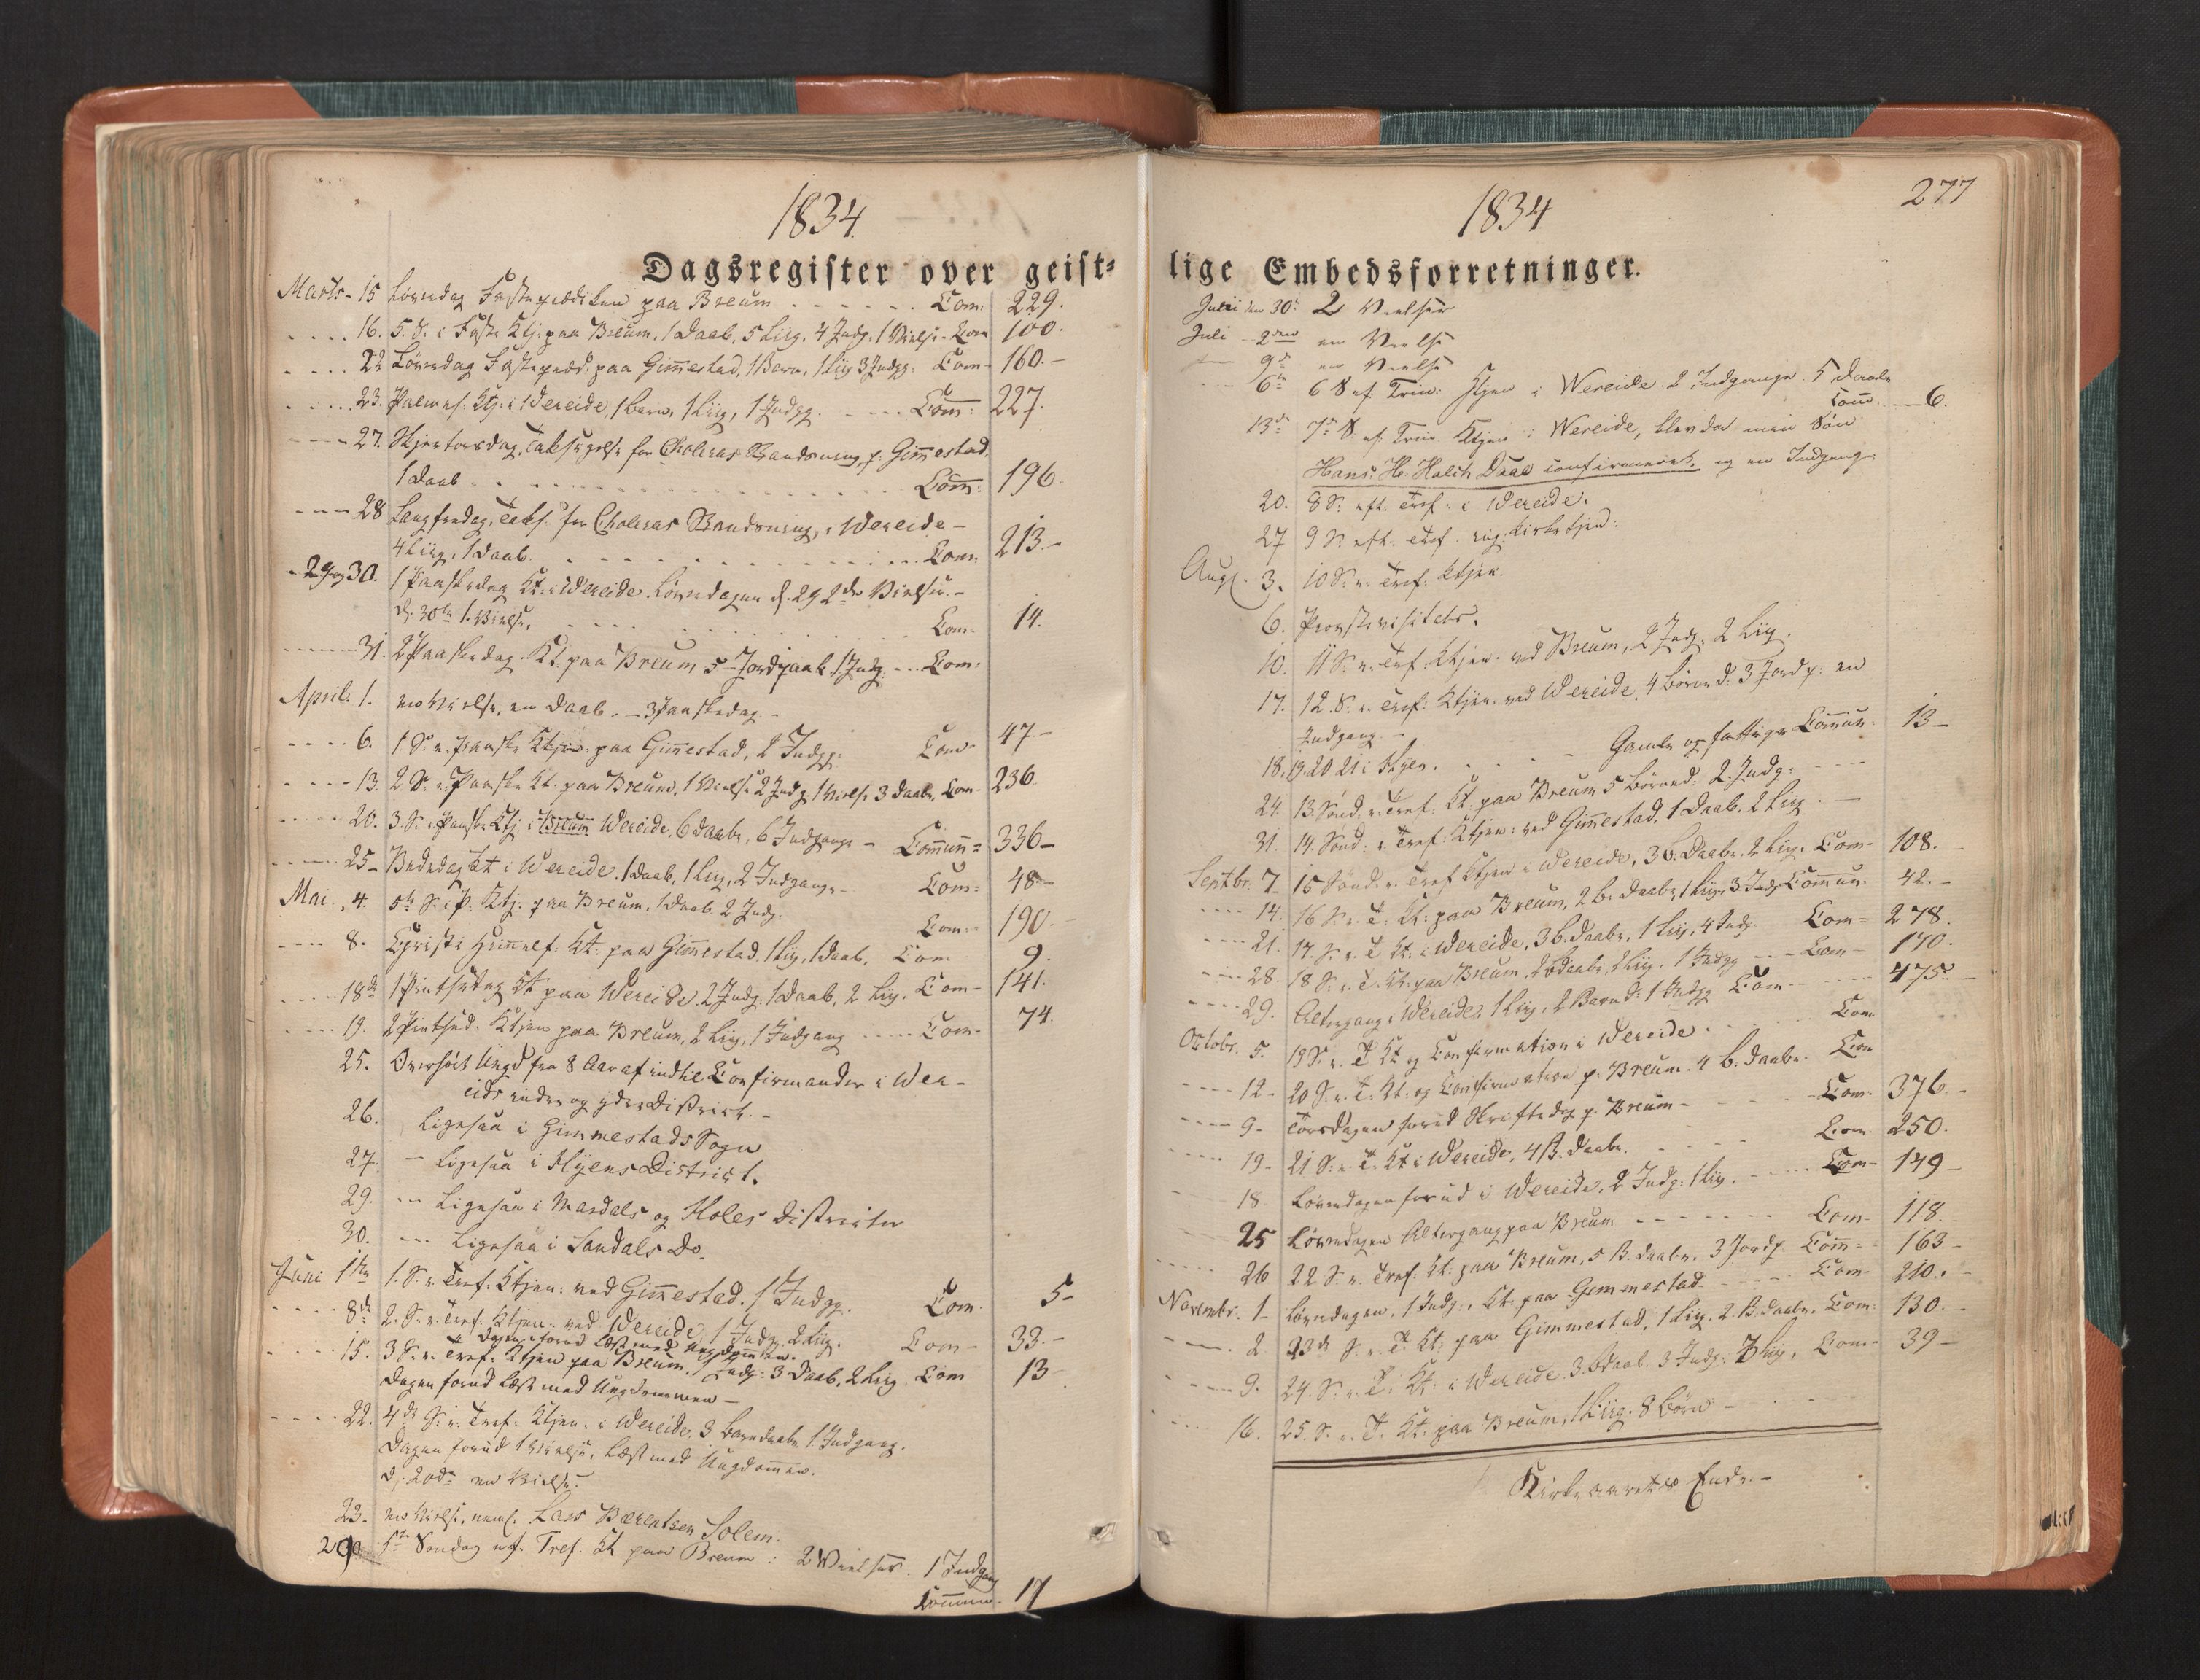 1834
Dagsregister over geist=
Marts - 15 Løverdag Fasteprædiken paa Breum . . . . . . Com: 229.
. . . . 16. 5. S. i Faste Ktj. paa Breum, 1 Daab, 5 Liig, 4 Indg. 1 Vielse - Com 100.
. . . . 22 Løverdag Fastepræd: paa Gim̄estad, 1 Barn, 1 Liig 3 Indgg. Com - 160. -
. . . . 23. Palmes. Ktj. i Wereide, 1 barn, 1 Liig, 1 Indgg. - . . . Com̄: 227.
- - - - 27. Skjertorsdag, Taksigelse for Choleras Standsning, p. Gim̄estad.
1 Daab . . . . . . . . . . . . Com̄: 196.
- - - - 28 Langfredag, Taks. for Choleras Standsning, i Wereide -
4 Liig, 1 Daab. . . . . . . . . . . . . Com. 213. -
- 29 og 30. 1 Paaskedag Kt. i Wereide. Løverdagen d. 29 2de Vielser. -
d. 30te 1. Vielse, . . . . . . . . . . Com. 14.
- - - - 31. 2 Paaskedag. Kt. paa Breum, 5 Jordpaak. 1 Indg. - - . Com:
April. 1. en Vielse, en Daab. - 3 Paaskedag. -
- - - - 6. 1 S. e. Paaske Ktjen: paa Gim̄estad, 2 Indgg. Com - 47 -
- - - - 13. 2 S. e. Paaske Kt. paa Breum, 1 Vielse 2 Indg. 1 Vielse 3 Daabe, Com - 236
- - - - 20. 3. S. e. Paaske Ktj. i Breum Wereide, 6 Daabe, 6 Indgange - Com̄un = 336 -
- - - - 25 - Bededag Kt i Wereide, 1 Daab, 1 Liig, 2 Indgange - Com = 48 -
Mai . 4. 5te S. e. P. Ktj. paa Breum, 1 Daab 2 Indg. Com. - 190. -
- - - - 8. Christi Him̄elf. Kt. paa Gim̄estad, 1 Liig, 1 Daab, Com 9.
. . . . 18de 1 Pintsedag Kt paa Wereide 2 Indg. 1 Daab, 2 Liig. Com - 141.
. . . . 19. 2 Pintsed. Ktjen paa Breum, 2 Liig, 1 Indgang - - - - Com - 74
25. Overhørt Ungd fra 8 Aar af indtil Confirmander i Wer-
eids indre og ydre District. -
26. Ligesaa i Gimmestads Sogn
27. - Ligesaa i Hyens District.
29. - - Ligesaa i Mardals og Holes Districter
30. - - Ligesaa i Sandals Do.
Juni 1te 1. S. e. Tref. Ktjen: ved Gim̄estad. 1 Indgg. Com. 5 -
. . . . 8de 2. S. e. Tref. Ktjen: ved Wereide, 1 Indg. 2 Liig. Com - 33. -
Dagen forud læst med Ungdom̄en.
. . . . 15. 3 S. e. Tref. Ktjen paa Breum, 1 Indg: 3 Daab, 2 Liig Com 13 -
Dagen forud læst med Ungdommen -
. . . . 22. 4de S. e. Tref. Ktjen. i Wereide. 3 Barndaabe 1. Indgang.
Dagen forud 1 Vielse, læst med Ungdom̄en.
d. 20de en Vielse.
23. en Vielse, neml. Lars Bærentsen Solem.
29 5te Søndag ef. Tref. Kt paa Breum : 2 Vielser. 1 Indgang
Com̄un. 17
1834
277
lige Embedsforretninger.
Junii den 30te 2 Vielser
Juli - 2den en Vielse
- 9de en Vielse
6te 6 S ef. Trin: Ktjen i Wereide 2 Indgange 5 Daabe
Com̄ - 6.
13de 7de S. ef. Trin Ktjen i Wereide, blev da min Søn
Hans H: Halch Daae confirmeret. og en Indgang.
20. 8 S. eft. Tref. i Wereide.
27 9 S. eft. Tref. Kirketjen:
Aug. 3. 10 S. e. Tref. Ktjen.
6. Provstevisitats.
10. 11 S. e. Tref. Ktjen. ved Breum, 2 Indg. 2 Liig.
17. 12. S. e. Tref: Ktjen. ved Wereide, 4 Børned: 3 Jordp: en
Indgang. -
18, 19. 20 21 i Hyen. . . . - Gamle og fattige Com̄un. 13 -
24. 13. Sønd. e. Tref. Kt. paa Breum 5 Børned. 2. Indg. - - -
31. 14. Sønd. e. Tref. Ktjen: ved Gim̄estad, 1 Daab, 2 Liig . -
Septbr. 7 - 15 Sønd. e. Tref Ktjen i Wereide, 3 b. Daabe, 2 Liig, Com - 108. -
- - - - 14. 16 S. e. T. Kt. paa Breum, 2 b. Daabe, 1 Liig, 3 Indg. Com̄un. 42. -
- - - - 21. 17. S. e. T. Kt. i Wereide, 3 b. Daabe, 1 Liig, 4 Indg. Com = 278.
- - - - 28. 18 S. e. T. Kt. paa Breum, 2 b Daabe, 2 Liig. 1 Indgg - - - Com - 170.
- - - - 29. Altergang i Wereide, 1 Liig, 2 Barnd: 1 Indgg Com - - - - 475. -
Octobr. 5. 19 S. e. T. Kt og Confirmation i Wereide . . Com
- - - - 12 - 20 S. e. T. Kt. og Confirmation p. Breum. 4 b. Daabe. Com
- - - - 9 - Torsdagen forud Skriftedag p. Breum - - - - Com - 376. -
- - - - 19 - 21 S. e. T. Kt i Wereide, 4 B. Daabe. - - - Com 250.
18. Løverdagen forud i Wereide, 2 Indg: 1 Liig. - - - Com - 149 -
25 Løverdagen Altergang paa Breum - - - - - - Com - 118.
26 22 S. e. Tref. Kt. paa Breum, 5 B. Daabe. 3 Jordp. Com̄ = 163 -
Novembr. 1 - Løverdagen. 1 Indg: Kt. paa Gimmestad - - - - Com - 210. -
- - - . 2 23de S. e. T. Kt. paa Gimmestad, 1 Liig. 2. B. Daabe. Com: 130. -
- - - - 9. 24. S. e. T. Kt. i Wereide. 3. b Daab. 3 Indg. 7 Liig, Com - 39 -
. . . 16. 25. S. e. T. Kt. paa Breum, 1 Liig. 8 Børn - . - -
Kirkeaarets Ende. -